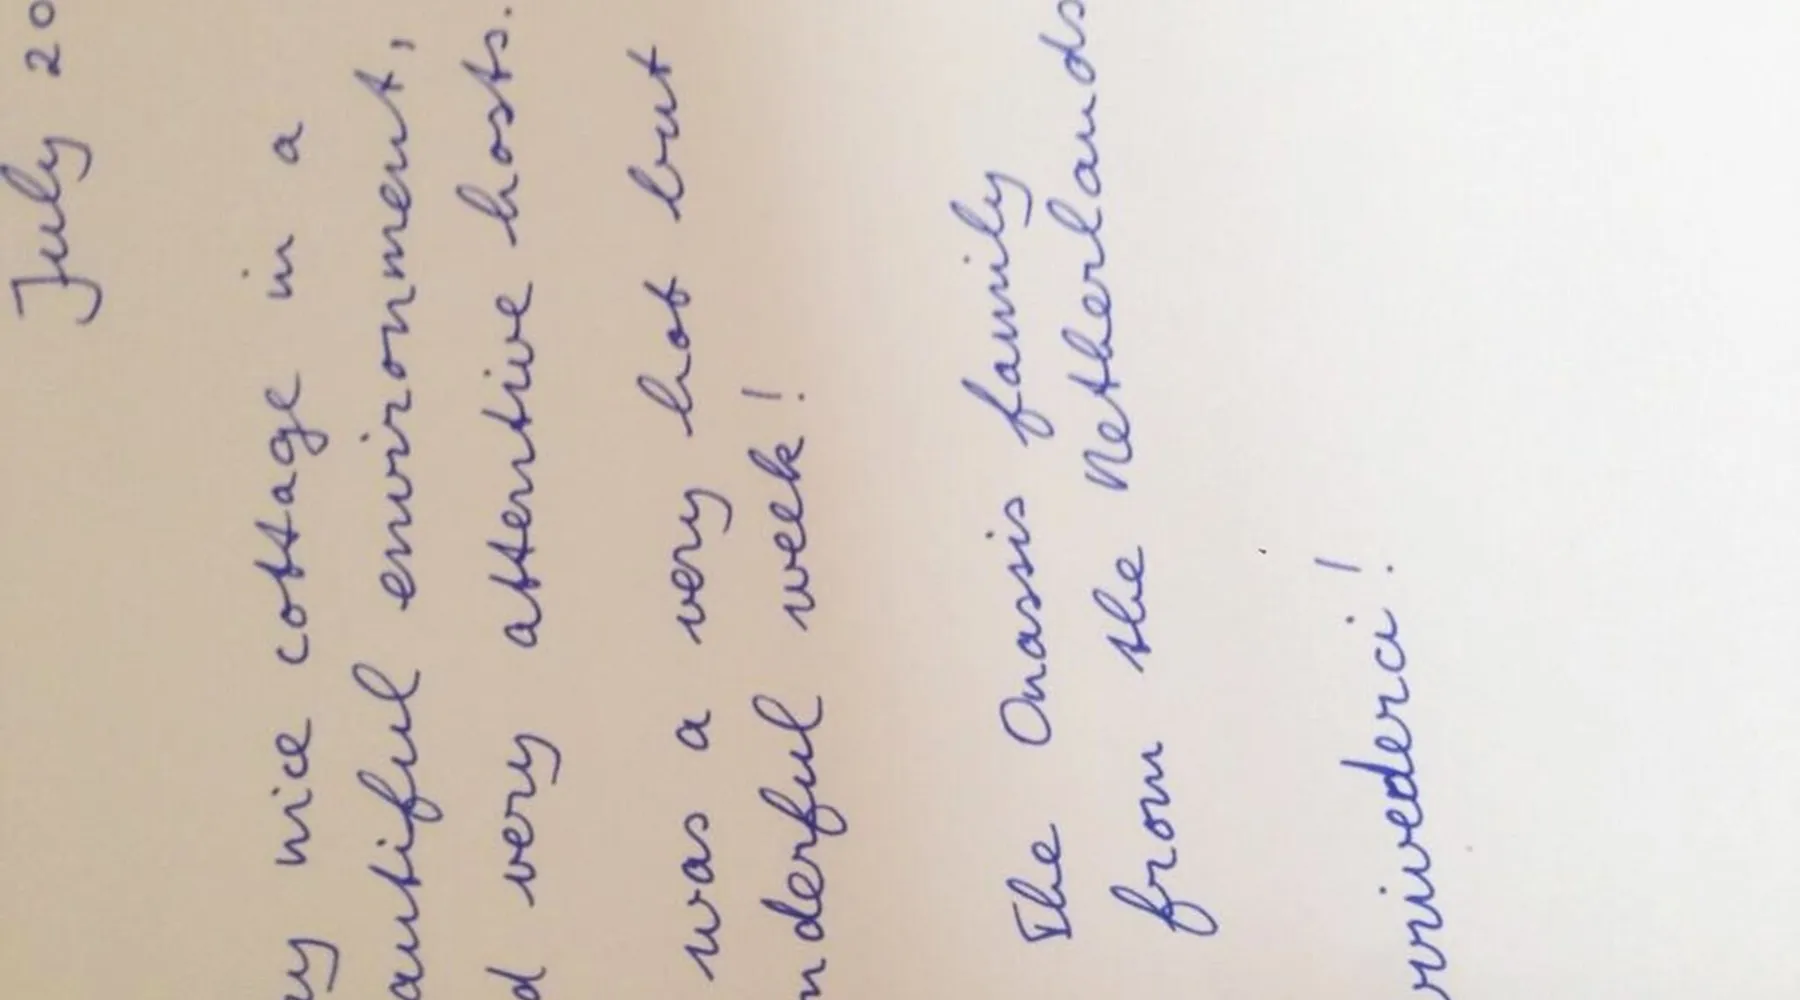 July 20
y nice cottage in a
autiful environment,
d very attentive hosts.
was a very hot but
nderful week!
The Onassis family
from the Netherlands
rrivederci!